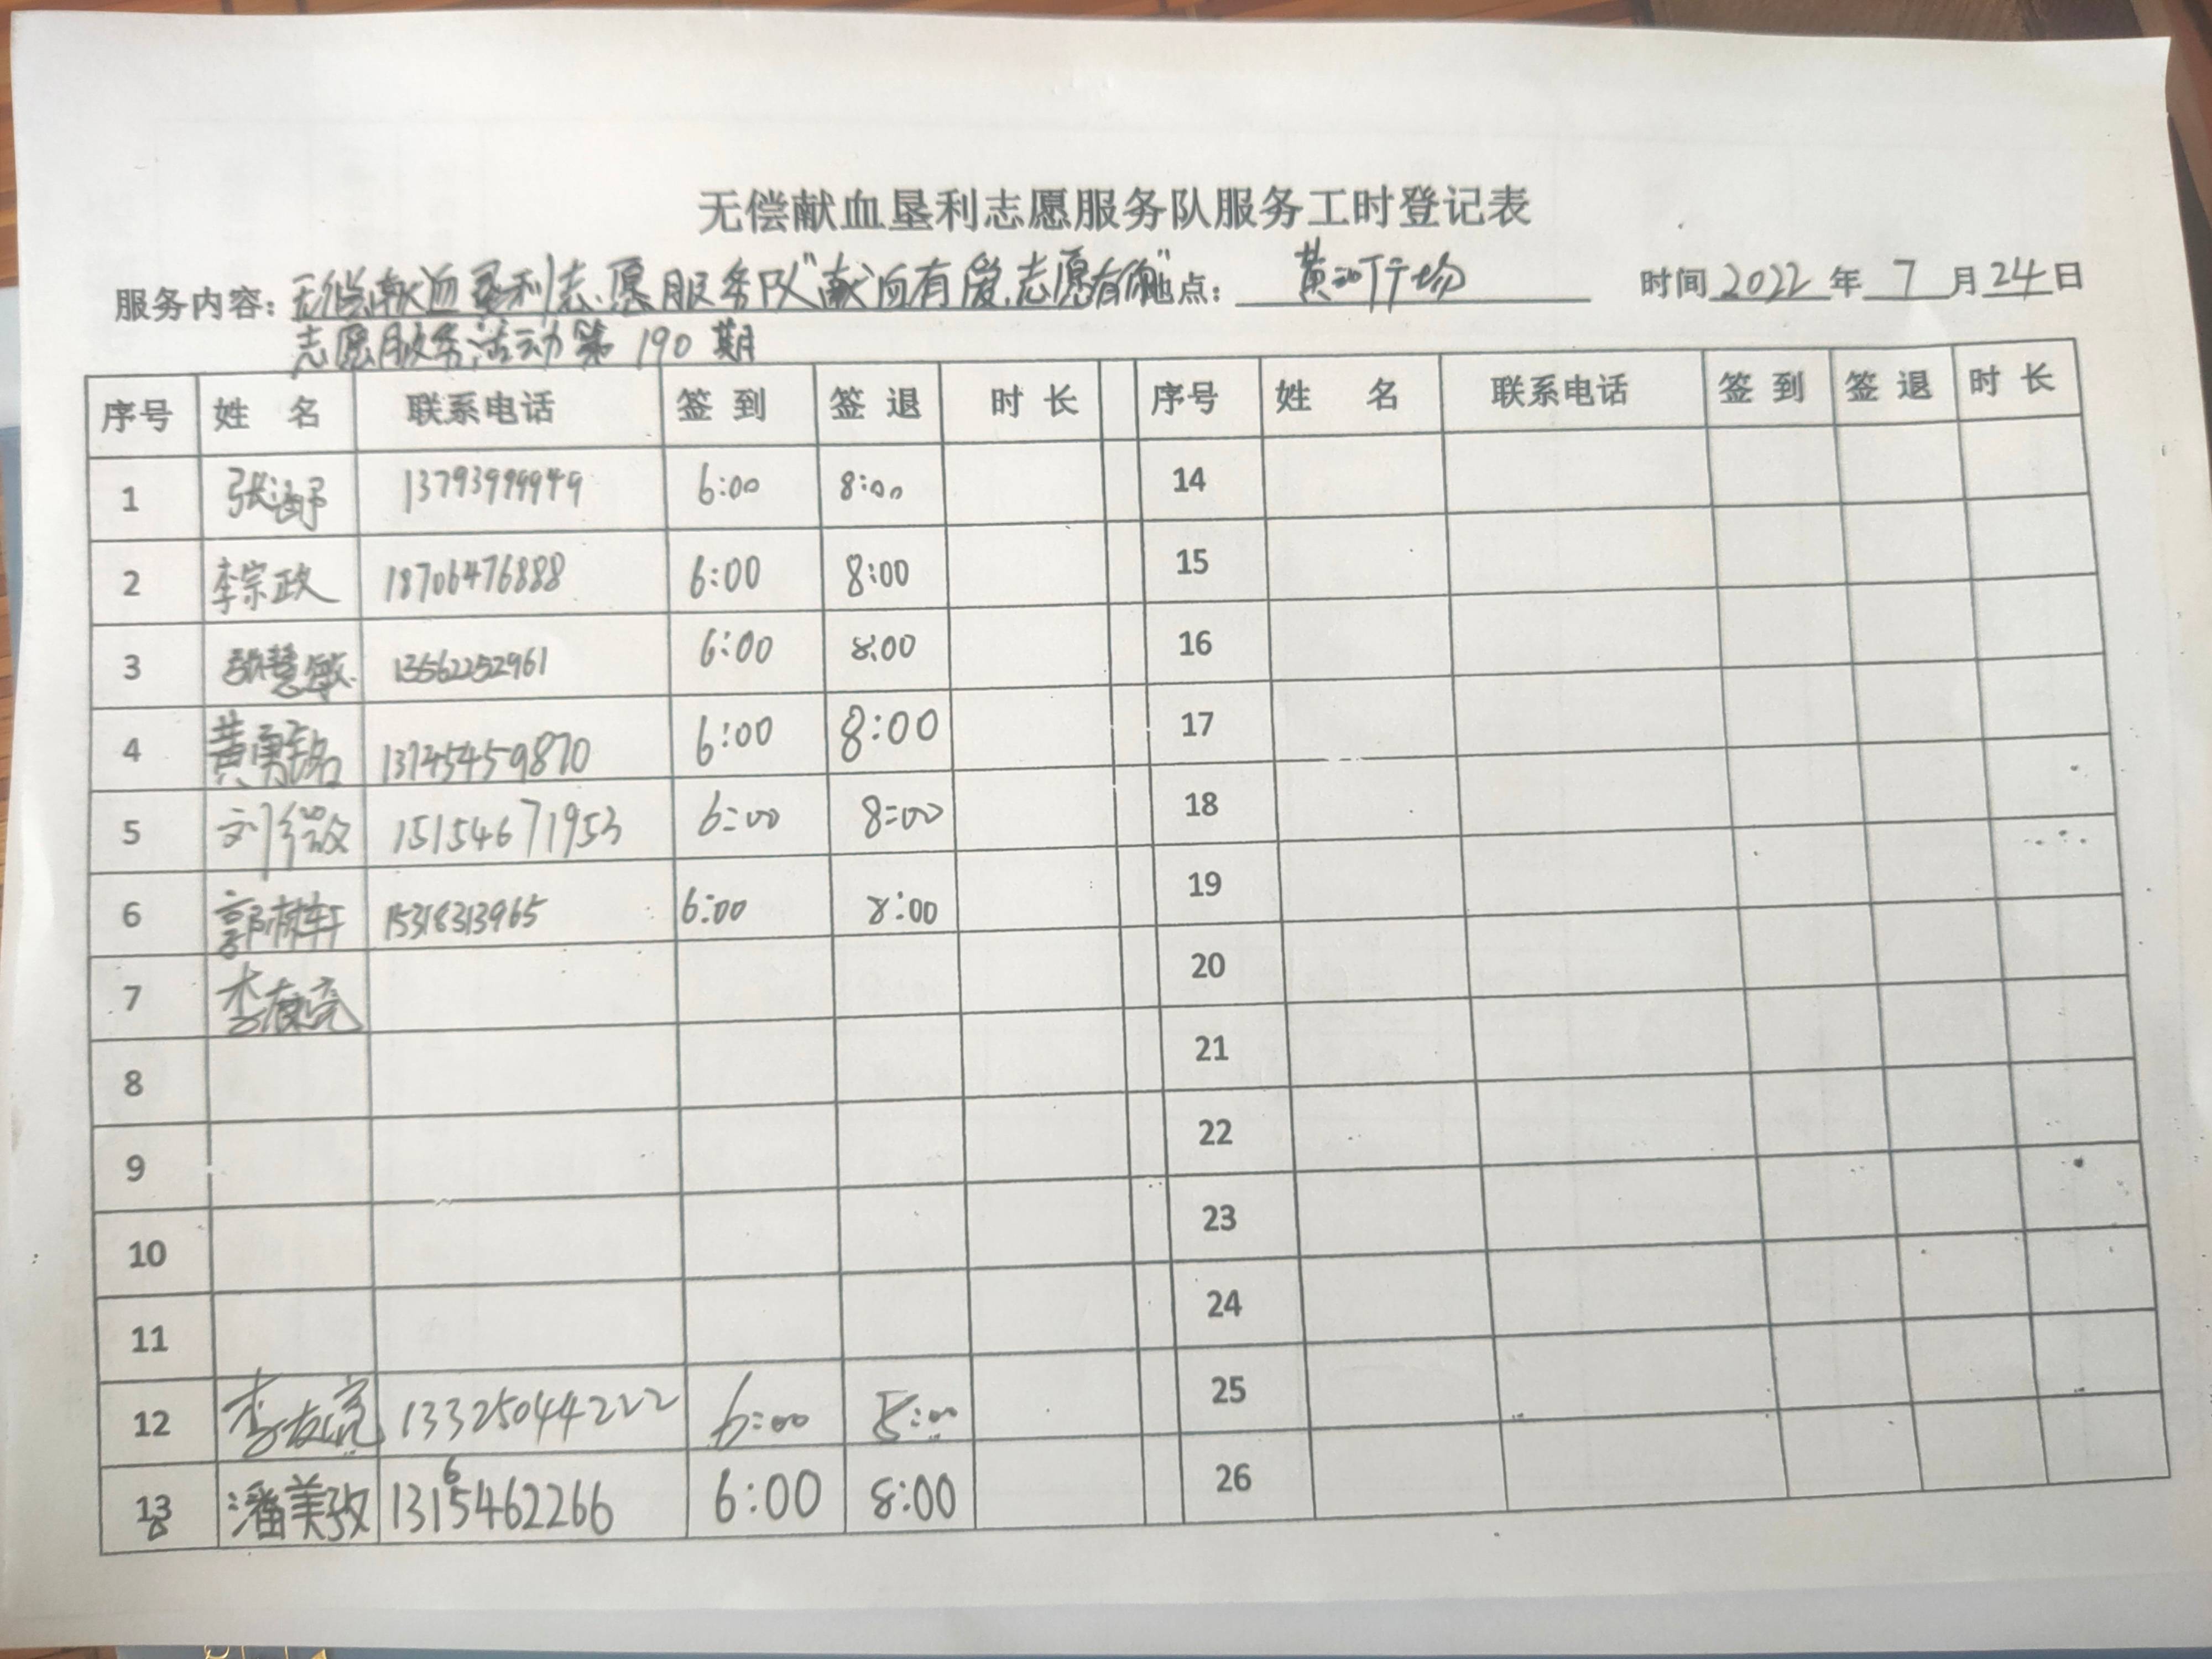 无偿献血垦利志愿服务队服务工时登记表
服务内容: 无偿献血垦利志愿服务队"献血有爱,志愿有你" 地点: 黄河广场 时间 2022 年 7 月 24 日
志愿服务活动第 190 期
序号 姓 名 联系电话 签 到 签 退 时 长 序号 姓 名 联系电话 签 到 签 退 时 长
1 张 6:00 8:00 14
2 李宗政 18706476888 6:00 8:00 15
3 张慧敏 13562252961 6:00 8:00 16
4 黄勇铭 13745459870 6:00 8:00 17
5 刘 15154671953 6:00 8:00 18
6 郭 15318313965 6:00 8:00 19
7 李 20
8 21
9 22
10 23
11 24
12 李友亮 13325044222 6:00 8:00 25
13 潘美孜 13165462266 6:00 8:00 26